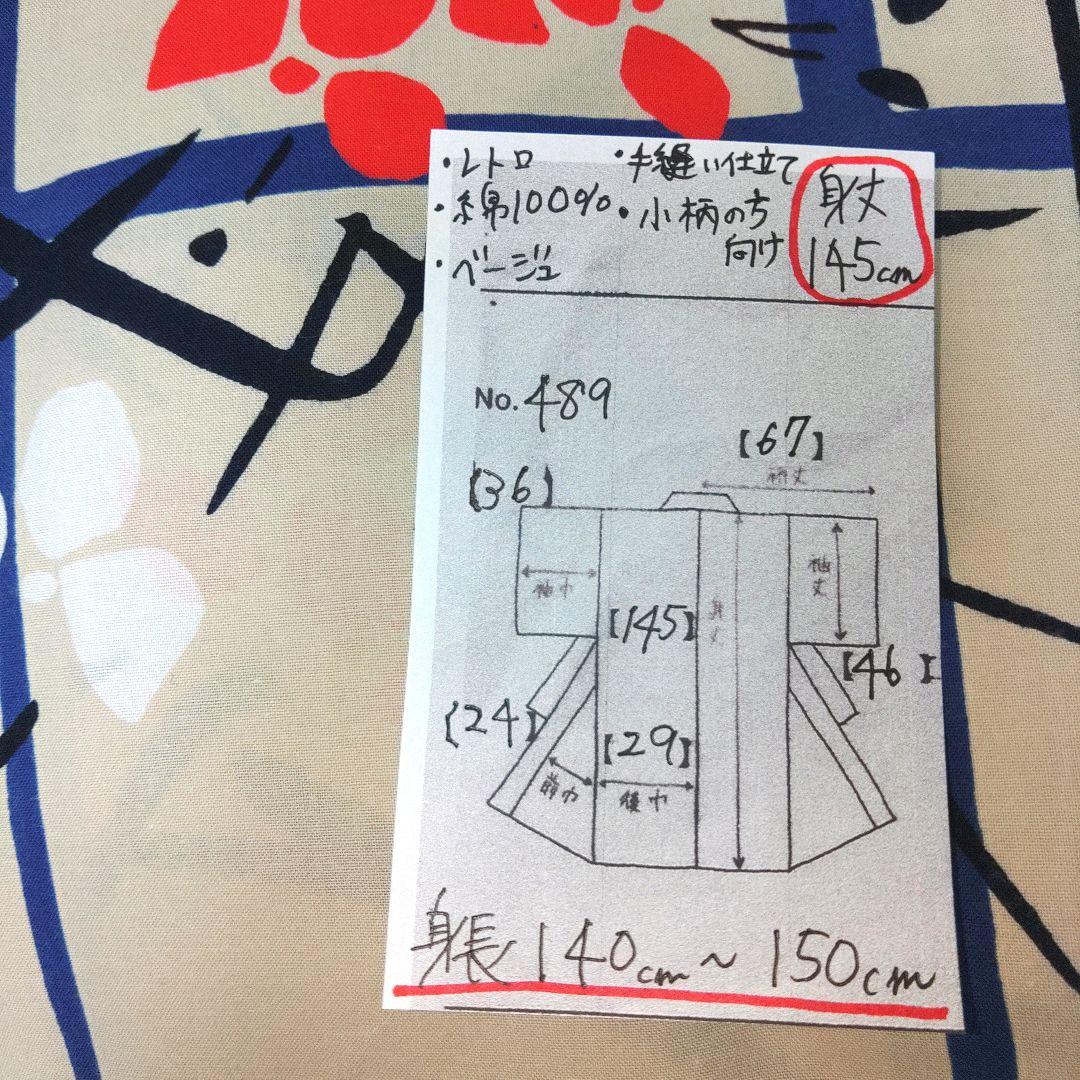 ・レトロ
・綿100%
・ベージュ
・手縫い仕立て
・小柄の方
向け
身丈
145cm
No.489
【67】
裄丈
【36】
袖巾
袖丈
【145】
身丈
【46】
【24】
【29】
前巾
後巾
身長140cm～150cm